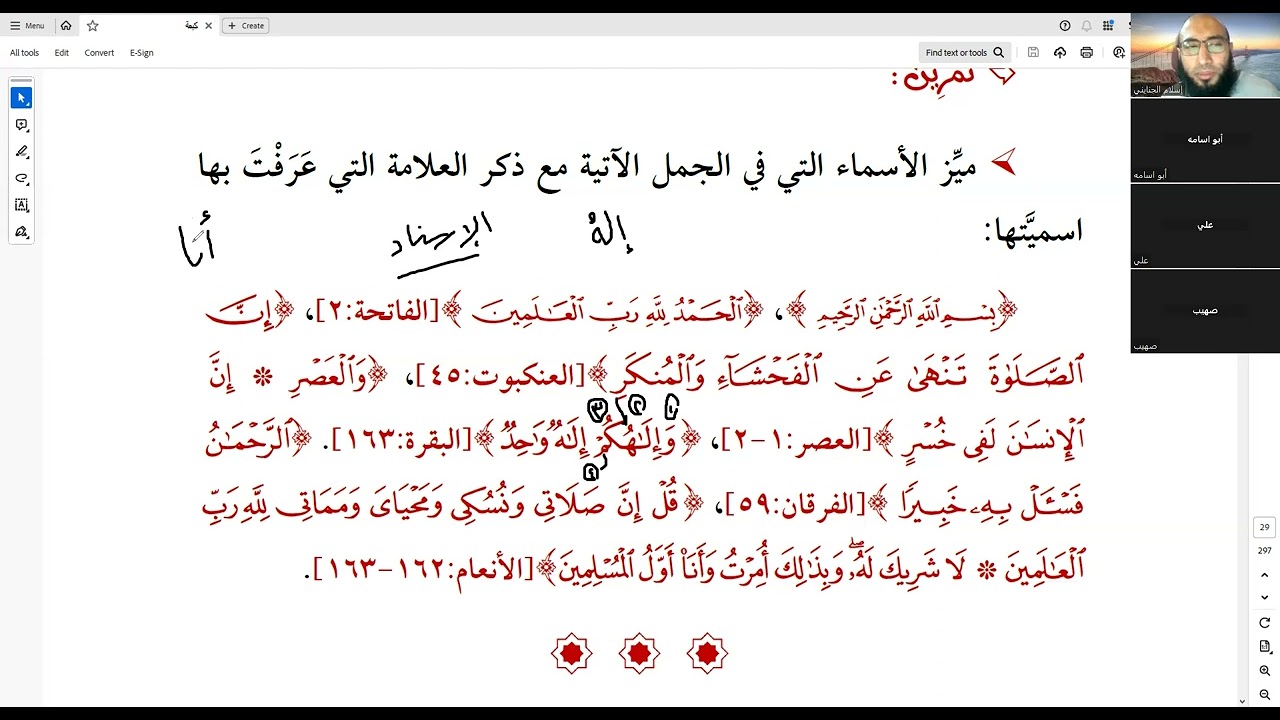 Menu
كيعة
Create
All tools
Edit
Convert
E-Sign
Find text or tools
إسلام الجنايني
أبو اسامه
أبو اسامه
علي
علي
صهيب
صهيب
تمرين:
ميِّز الأسماء التي في الجمل الآتية مع ذكر العلامة التي عَرَفْتَ بها
اسميَّتها:
إلهٌ
الإسناد
أنا
﴿بِسْمِ ٱللَّهِ ٱلرَّحْمَٰنِ ٱلرَّحِيمِ﴾، ﴿ٱلْحَمْدُ لِلَّهِ رَبِّ ٱلْعَـٰلَمِينَ﴾[الفاتحة:٢]، ﴿إِنَّ
ٱلصَّلَوٰةَ تَنْهَىٰ عَنِ ٱلْفَحْشَآءِ وَٱلْمُنكَرِ﴾[العنكبوت:٤٥]، ﴿وَٱلْعَصْرِ * إِنَّ
١ ٢ ٣
ٱلْإِنسَـٰنَ لَفِى خُسْرٍ﴾[العصر:١-٢]، ﴿وَإِلَـٰهُكُمْ إِلَـٰهٌ وَٰحِدٌ﴾[البقرة:١٦٣]. ﴿ٱلرَّحْمَـٰنُ
٤
فَسْـَٔلْ بِهِۦ خَبِيرًا﴾[الفرقان:٥٩]، ﴿قُلْ إِنَّ صَلَاتِى وَنُسُكِى وَمَحْيَاىَ وَمَمَاتِى لِلَّهِ رَبِّ
ٱلْعَـٰلَمِينَ * لَا شَرِيكَ لَهُۥ ۖ وَبِذَٰلِكَ أُمِرْتُ وَأَنَا۠ أَوَّلُ ٱلْمُسْلِمِينَ﴾[الأنعام:١٦٢-١٦٣].
29
297